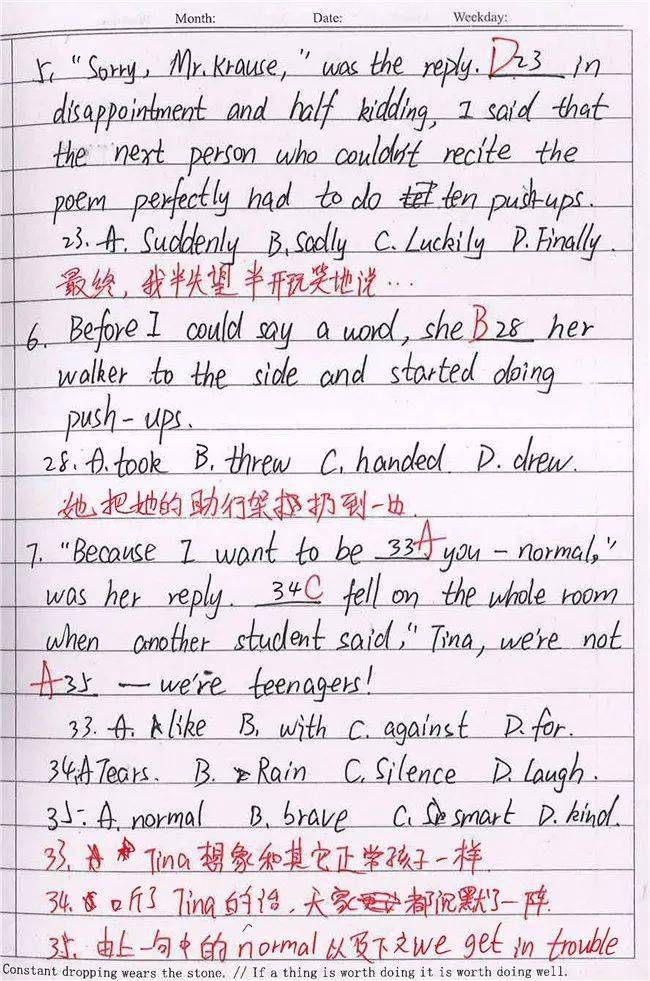 Month: Date: Weekday:
5. "Sorry, Mr. Krause," was the reply. D23 in
disappointment and half kidding, I said that
the next person who couldn't recite the
poem perfectly had to do ten push-ups.
23. A. Suddenly B. Sadly C. Luckily D. Finally.
最终，我半失望半开玩笑地说…
6. Before I could say a word, she B28 her
walker to the side and started doing
push-ups.
28. A. took B. threw C. handed. D. drew.
她把她的助行架扔到一边.
7. "Because I want to be 33A you – normal,"
was her reply. 34C fell on the whole room
when another student said, "Tina, we're not
A35 — we're teenagers!
33. A. like B. with C. against D. for.
34. A Tears. B. Rain C. Silence D. Laugh.
35. A. normal B. brave C. smart D. kind.
33. Tina想象和其它正常孩子一样.
34. 听了Tina的话，大家都沉默了一阵.
35. 由上一句中的normal以及下文we get in trouble
Constant dropping wears the stone. // If a thing is worth doing it is worth doing well.